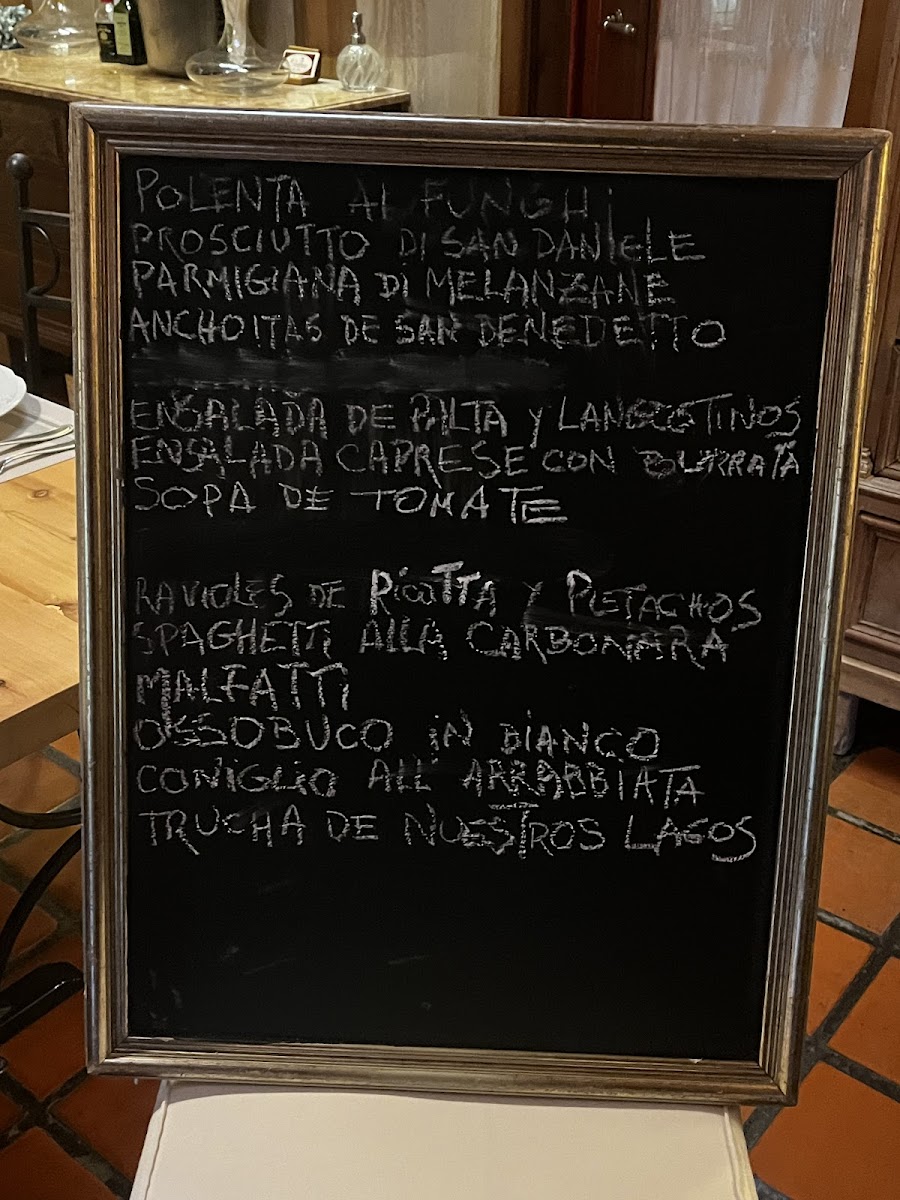 POLENTA AL FUNGHI
PROSCIUTTO DI SAN DANIELE
PARMIGIANA DI MELANZANE
ANCHOITAS DE SAN BENEDETTO
ENSALADA DE PALTA y LANGOSTINOS
ENSALADA CAPRESE CON BURRATA
SOPA DE TOMATE
RAVIOLES DE RicoTTA y PISTACHOS
SPAGHETTI ALLA CARBONARA
MALFATTI
OSSOBUCO iN BIANCO
CONiGLiO ALL' ARRABBIATA
TRUCHA DE NUESTROS LAGOS